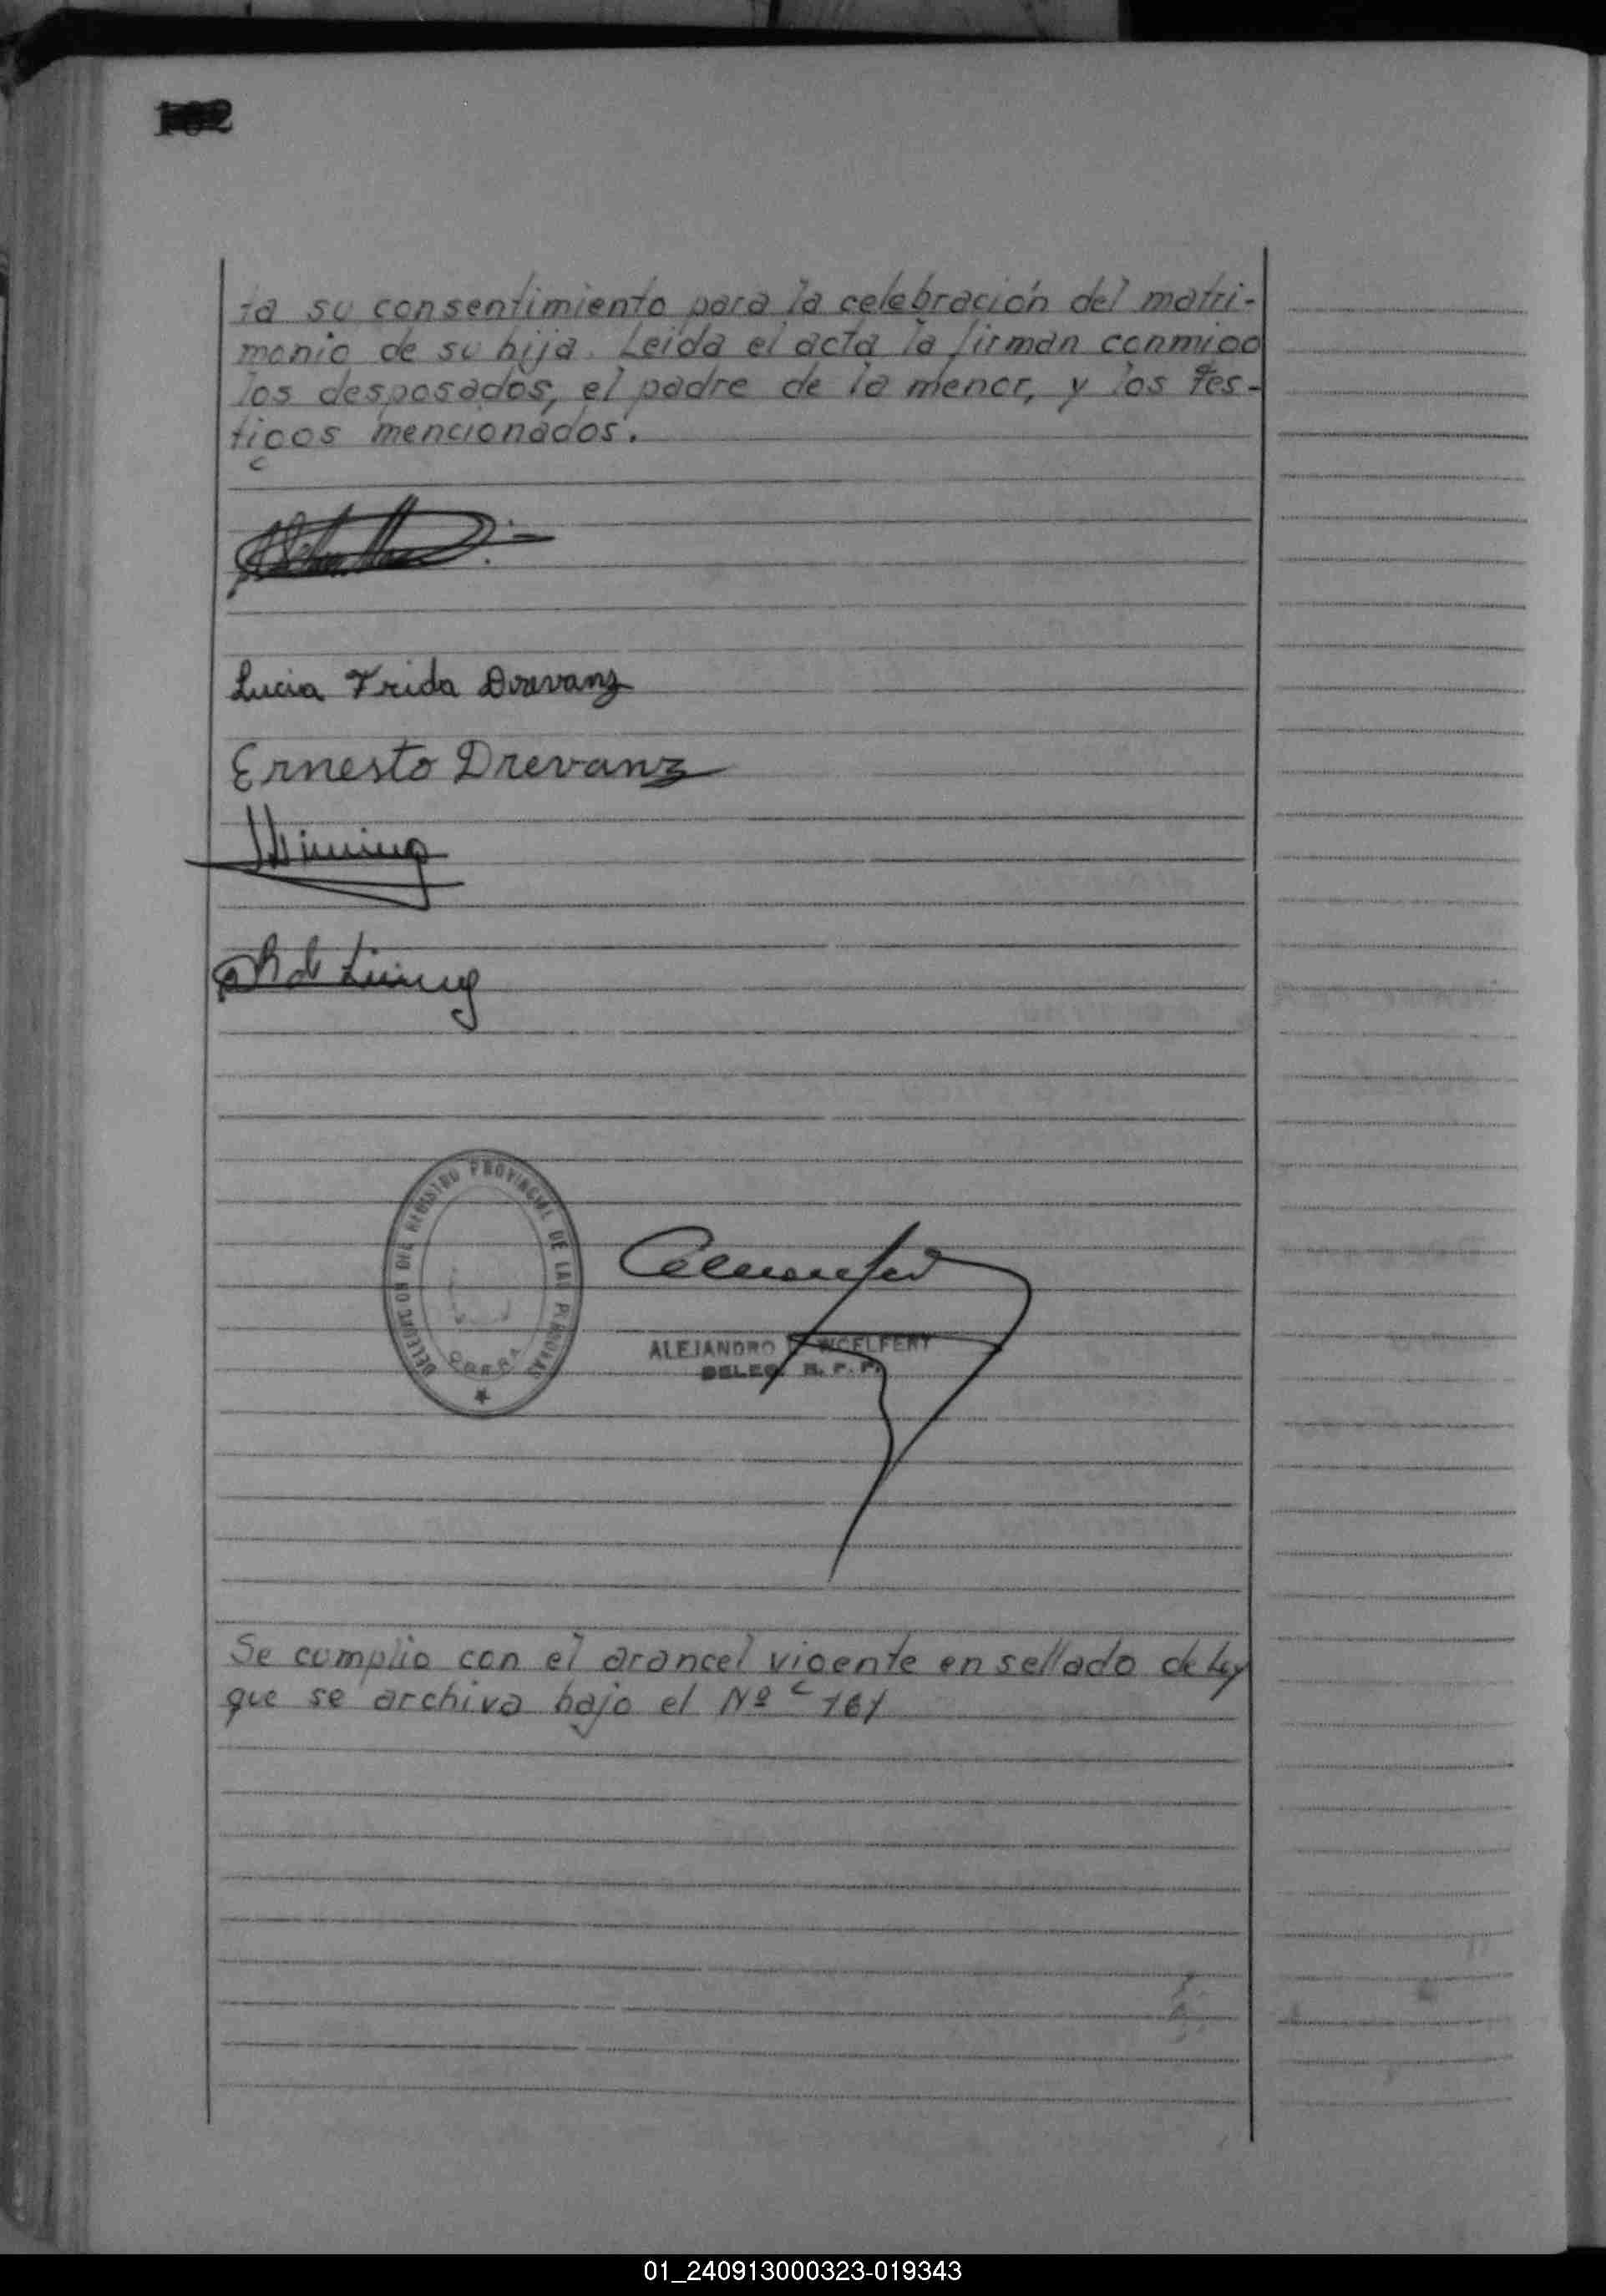 ta su consentimiento para la celebración del matri-
monio de su hija. Leída el acta la firman conmigo
los desposados, el padre de la menor, y los tes-
tigos mencionados.
Lucia Frida Drevanz
Ernesto Drevanz
DELEGACION DEL REGISTRO PROVINCIAL DE LAS PERSONAS
OBERA
ALEJANDRO
DELEG. R. P. P.
Se cumplio con el arancel vigente en sellado de Ley
que se archiva bajo el Nº 161
01_240913000323-019343